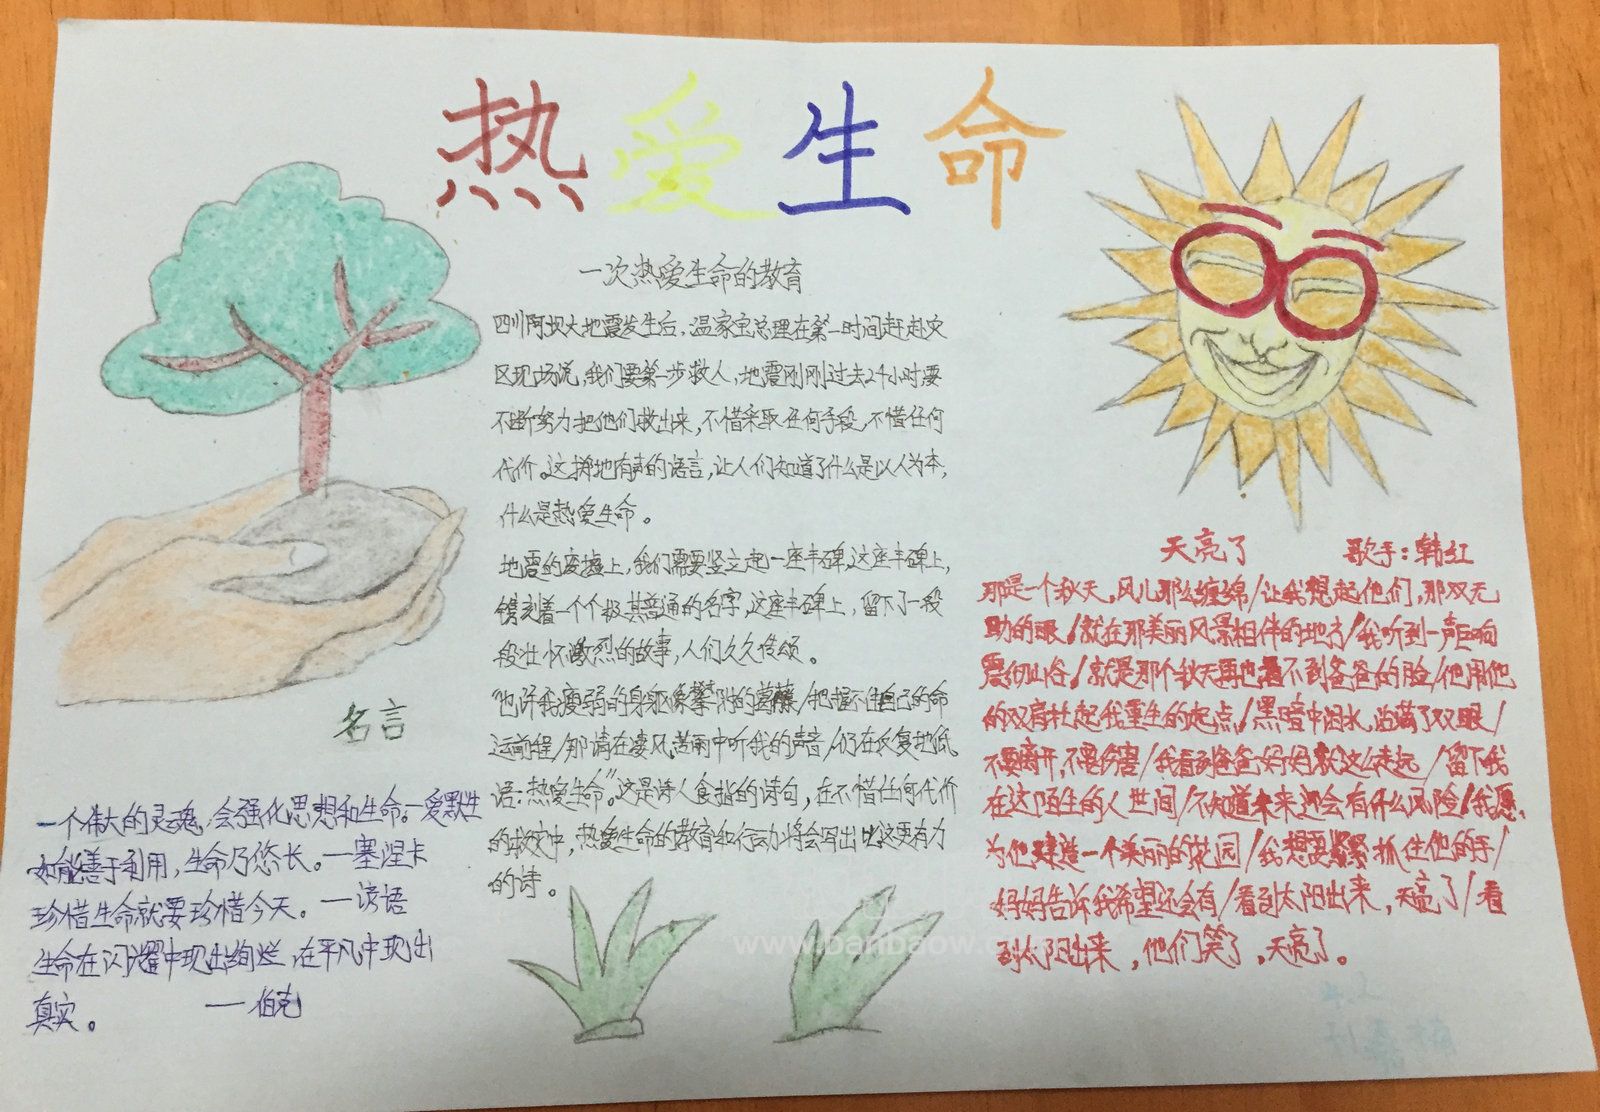 热爱生命
一次热爱生命的教育
四川阿坝大地震发生后,温家宝总理在第一时间赶赴灾
区现场说,我们要第一步救人,地震刚刚过去24小时要
不断努力把他们救出来,不惜采取任何手段,不惜任何
代价。这掷地有声的语言,让人们知道了什么是以人为本,
什么是热爱生命。
地震的废墟上,我们需要竖立起一座丰碑,这座丰碑上,
镌刻着一个个极其普通的名字,这座丰碑上,留下了一段
段壮怀激烈的故事,人们久久传颂。
"也许我瘦弱的身躯像攀附的葛藤/把握不住自己的命
运前程/那请在凄风苦雨中听我的声音/仍在反复地低
语:热爱生命。"这是诗人食指的诗句,在不惜任何代价
的救灾中,热爱生命的教育和行动将会写出比这更有力
的诗。
名言
一个伟大的灵魂,会强化思想和生命。—爱默生
如能善于利用,生命乃悠长。—塞涅卡
珍惜生命就要珍惜今天。—谚语
生命在闪耀中现出绚烂,在平凡中现出
真实。 —伯克
天亮了 歌手:韩红
那是一个秋天,风儿那么缠绵/让我想起他们,那双无
助的眼/就在那美丽风景相伴的地方/我听到一声巨响
震彻山谷/就是那个秋天再也看不到爸爸的脸/他用他
的双肩托起我重生的起点/黑暗中泪水,沾满了双眼/
不要离开,不要伤害/我看到爸爸妈妈就这么走远/留下我
在这陌生的人世间/不知道未来还会有什么风险/我愿,
为他建造一个美丽的花园/我想要紧紧抓住他的手/
妈妈告诉我希望还会有/看到太阳出来,天亮了/看
到太阳出来,他们笑了,天亮了。